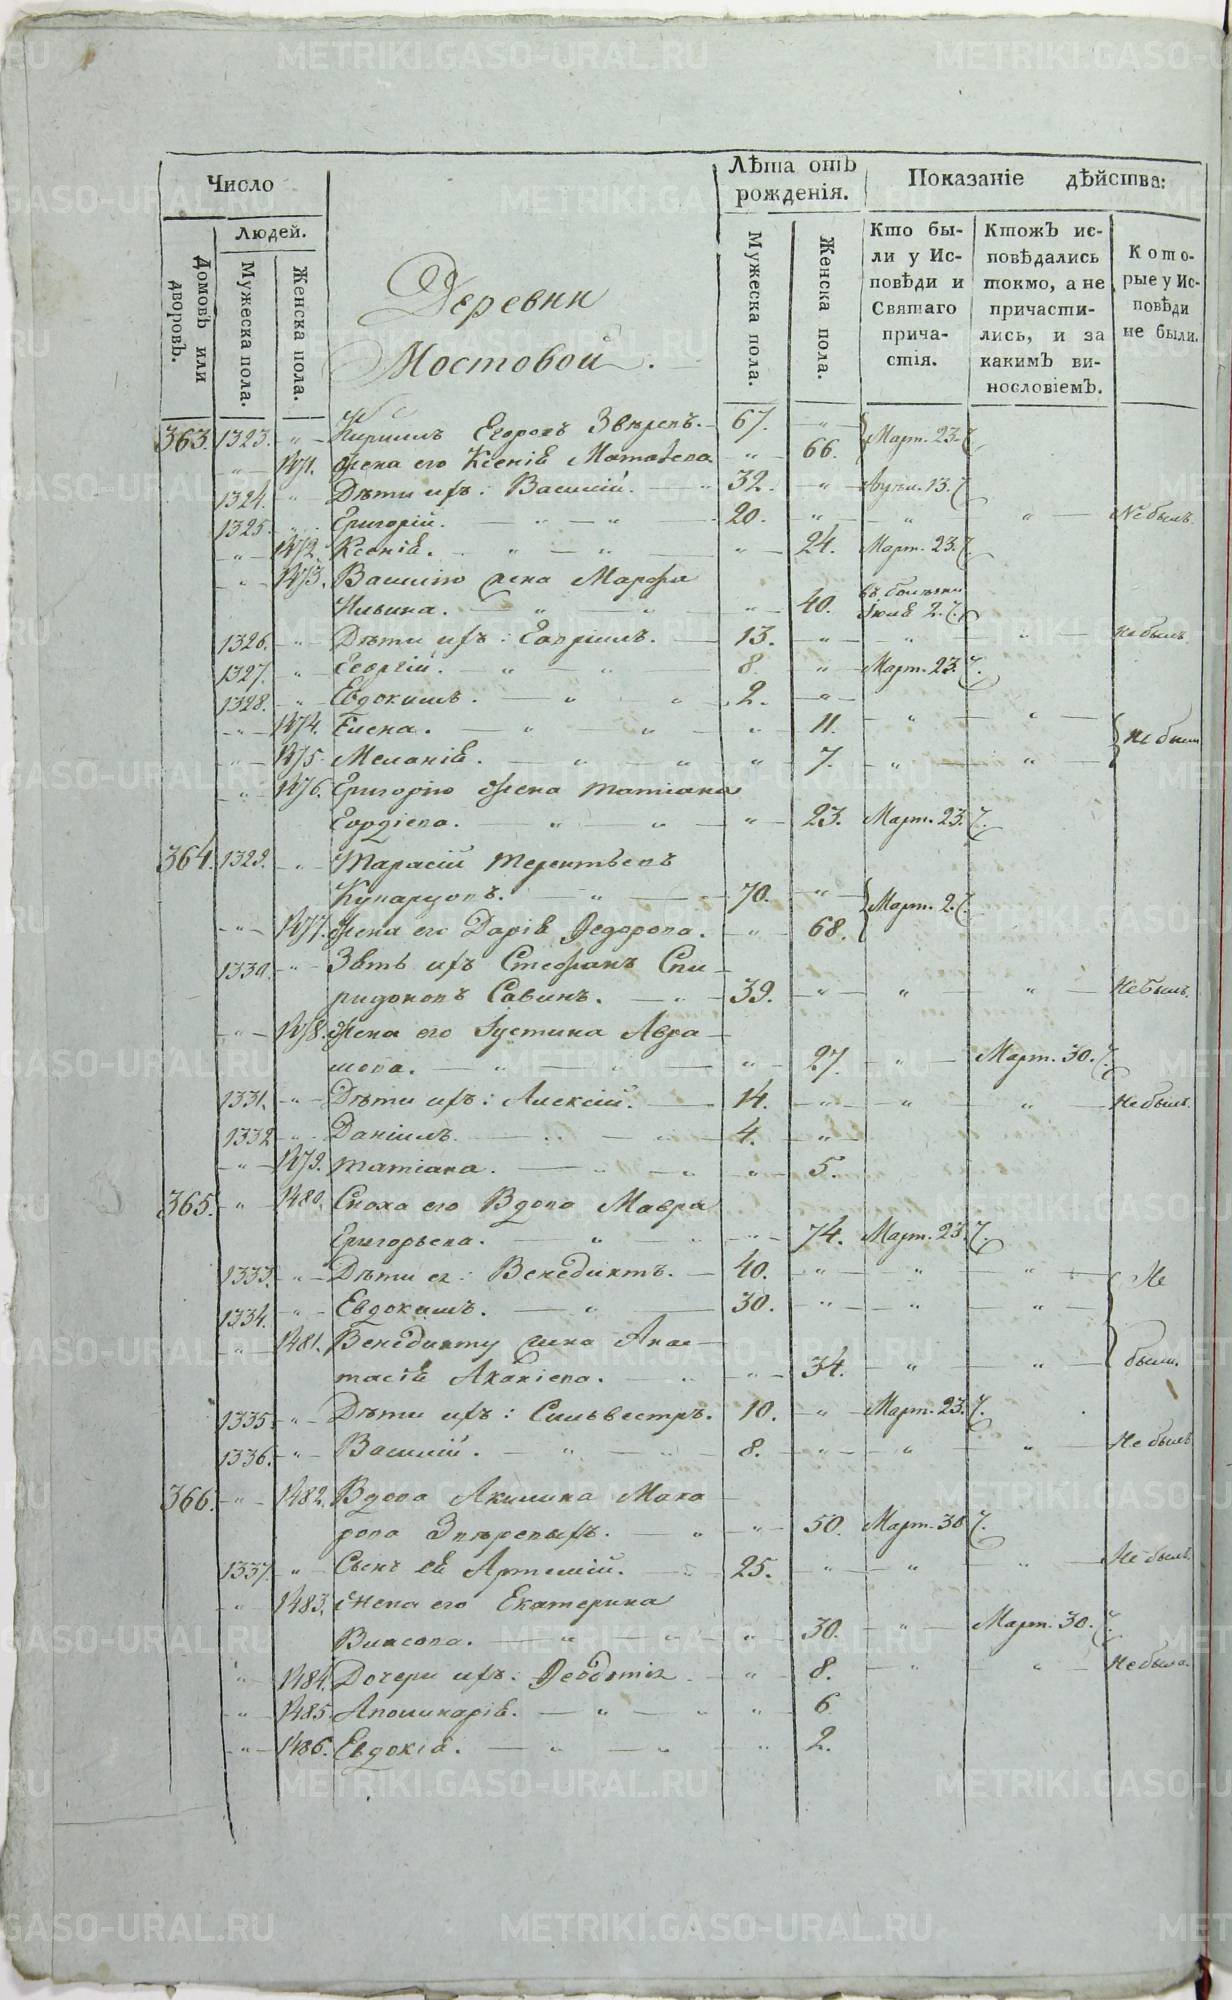 Число
Людей.
Домовъ или дворовъ.
Мужеска пола.
Женска пола.
Лѣта отъ рожденія.
Мужеска пола.
Женска пола.
Показаніе дѣйства:
Кто бы-
ли у Ис-
повѣди и
Святаго
прича-
стія.
Ктожъ ис-
повѣдались
токмо, а не
причасти-
лись, и за
какимъ ви-
нословіемъ.
Кото-
рые у Ис-
повѣди
не были.
Деревни
Мостовой.
363. 1323. " Кирилъ Егоровъ Звѣревъ. 67. " Март. 23.
" 1471. Жена его Ксенія Матвѣева " 66.
1324. " Дѣти ихъ: Василій. " 32. " Апрѣл. 13.
1325. " Григорій. " " 20. " " " Небылъ.
" 1472. Ксенія. " " " 24. Март. 23.
" 1473. Василію жена Марфа
Ильина. " " " 40. въ болѣзни Іюля 2.
1326. " Дѣти ихъ: Гавріилъ. 13. " " " Небылъ.
1327. " Георгій. " " 8. " Март. 23.
1328. " Евдокимъ. " " 2. "
" 1474. Елена. " " " 11. " " не были
" 1475. Меланія. " " " 7. " "
" 1476. Григорію жена Татіана
Гордіева. " " " 23. Март. 23.
364. 1329. " Тарасій Терентьевъ
Кунарцовъ. " 70. " Март. 2.
" 1477. Жена его Дарія Ѳедорова. " 68.
1330. " Зять ихъ Стефанъ Спи-
ридоновъ Савинъ. " 39. " " " Небылъ.
" 1478. Жена его Іустина Авра-
мова. " " " 27. " Март. 30.
1331. " Дѣти ихъ: Алексій. 14. " " " Небылъ.
1332 " Даніилъ. " " 4. "
" 1479. Татіана. " " " 5.
365. " 1480. Сноха его Вдова Мавра
Григорьева. " " " 74. Март. 23.
1333. " Дѣти ея: Венедиктъ. 40. " " " Не
1334. " Евдокимъ. " 30. " " "
" 1481. Венедикту жена Анас-
тасія Акакіева. " " 34. " " были.
1335. " Дѣти ихъ: Сильвестръ. 10. " Март. 23.
1336. " Василій. " " 8. " " " Не былъ
366. " 1482. Вдова Акилина Мака-
рова Звѣревыхъ. " " 50. Март. 30
1337. " Сынъ ея Артемій. " 25. " " " Не былъ.
" 1483. Жена его Екатерина
" " " 30. " Март. 30.
" 1484. Дочери ихъ: Ѳеодотія " 8. " " Небыла.
" 1485. Аполинарія. " " " 6
" 1486. Евдокія. " " " 2.
METRIKI.GASO-URAL.RU